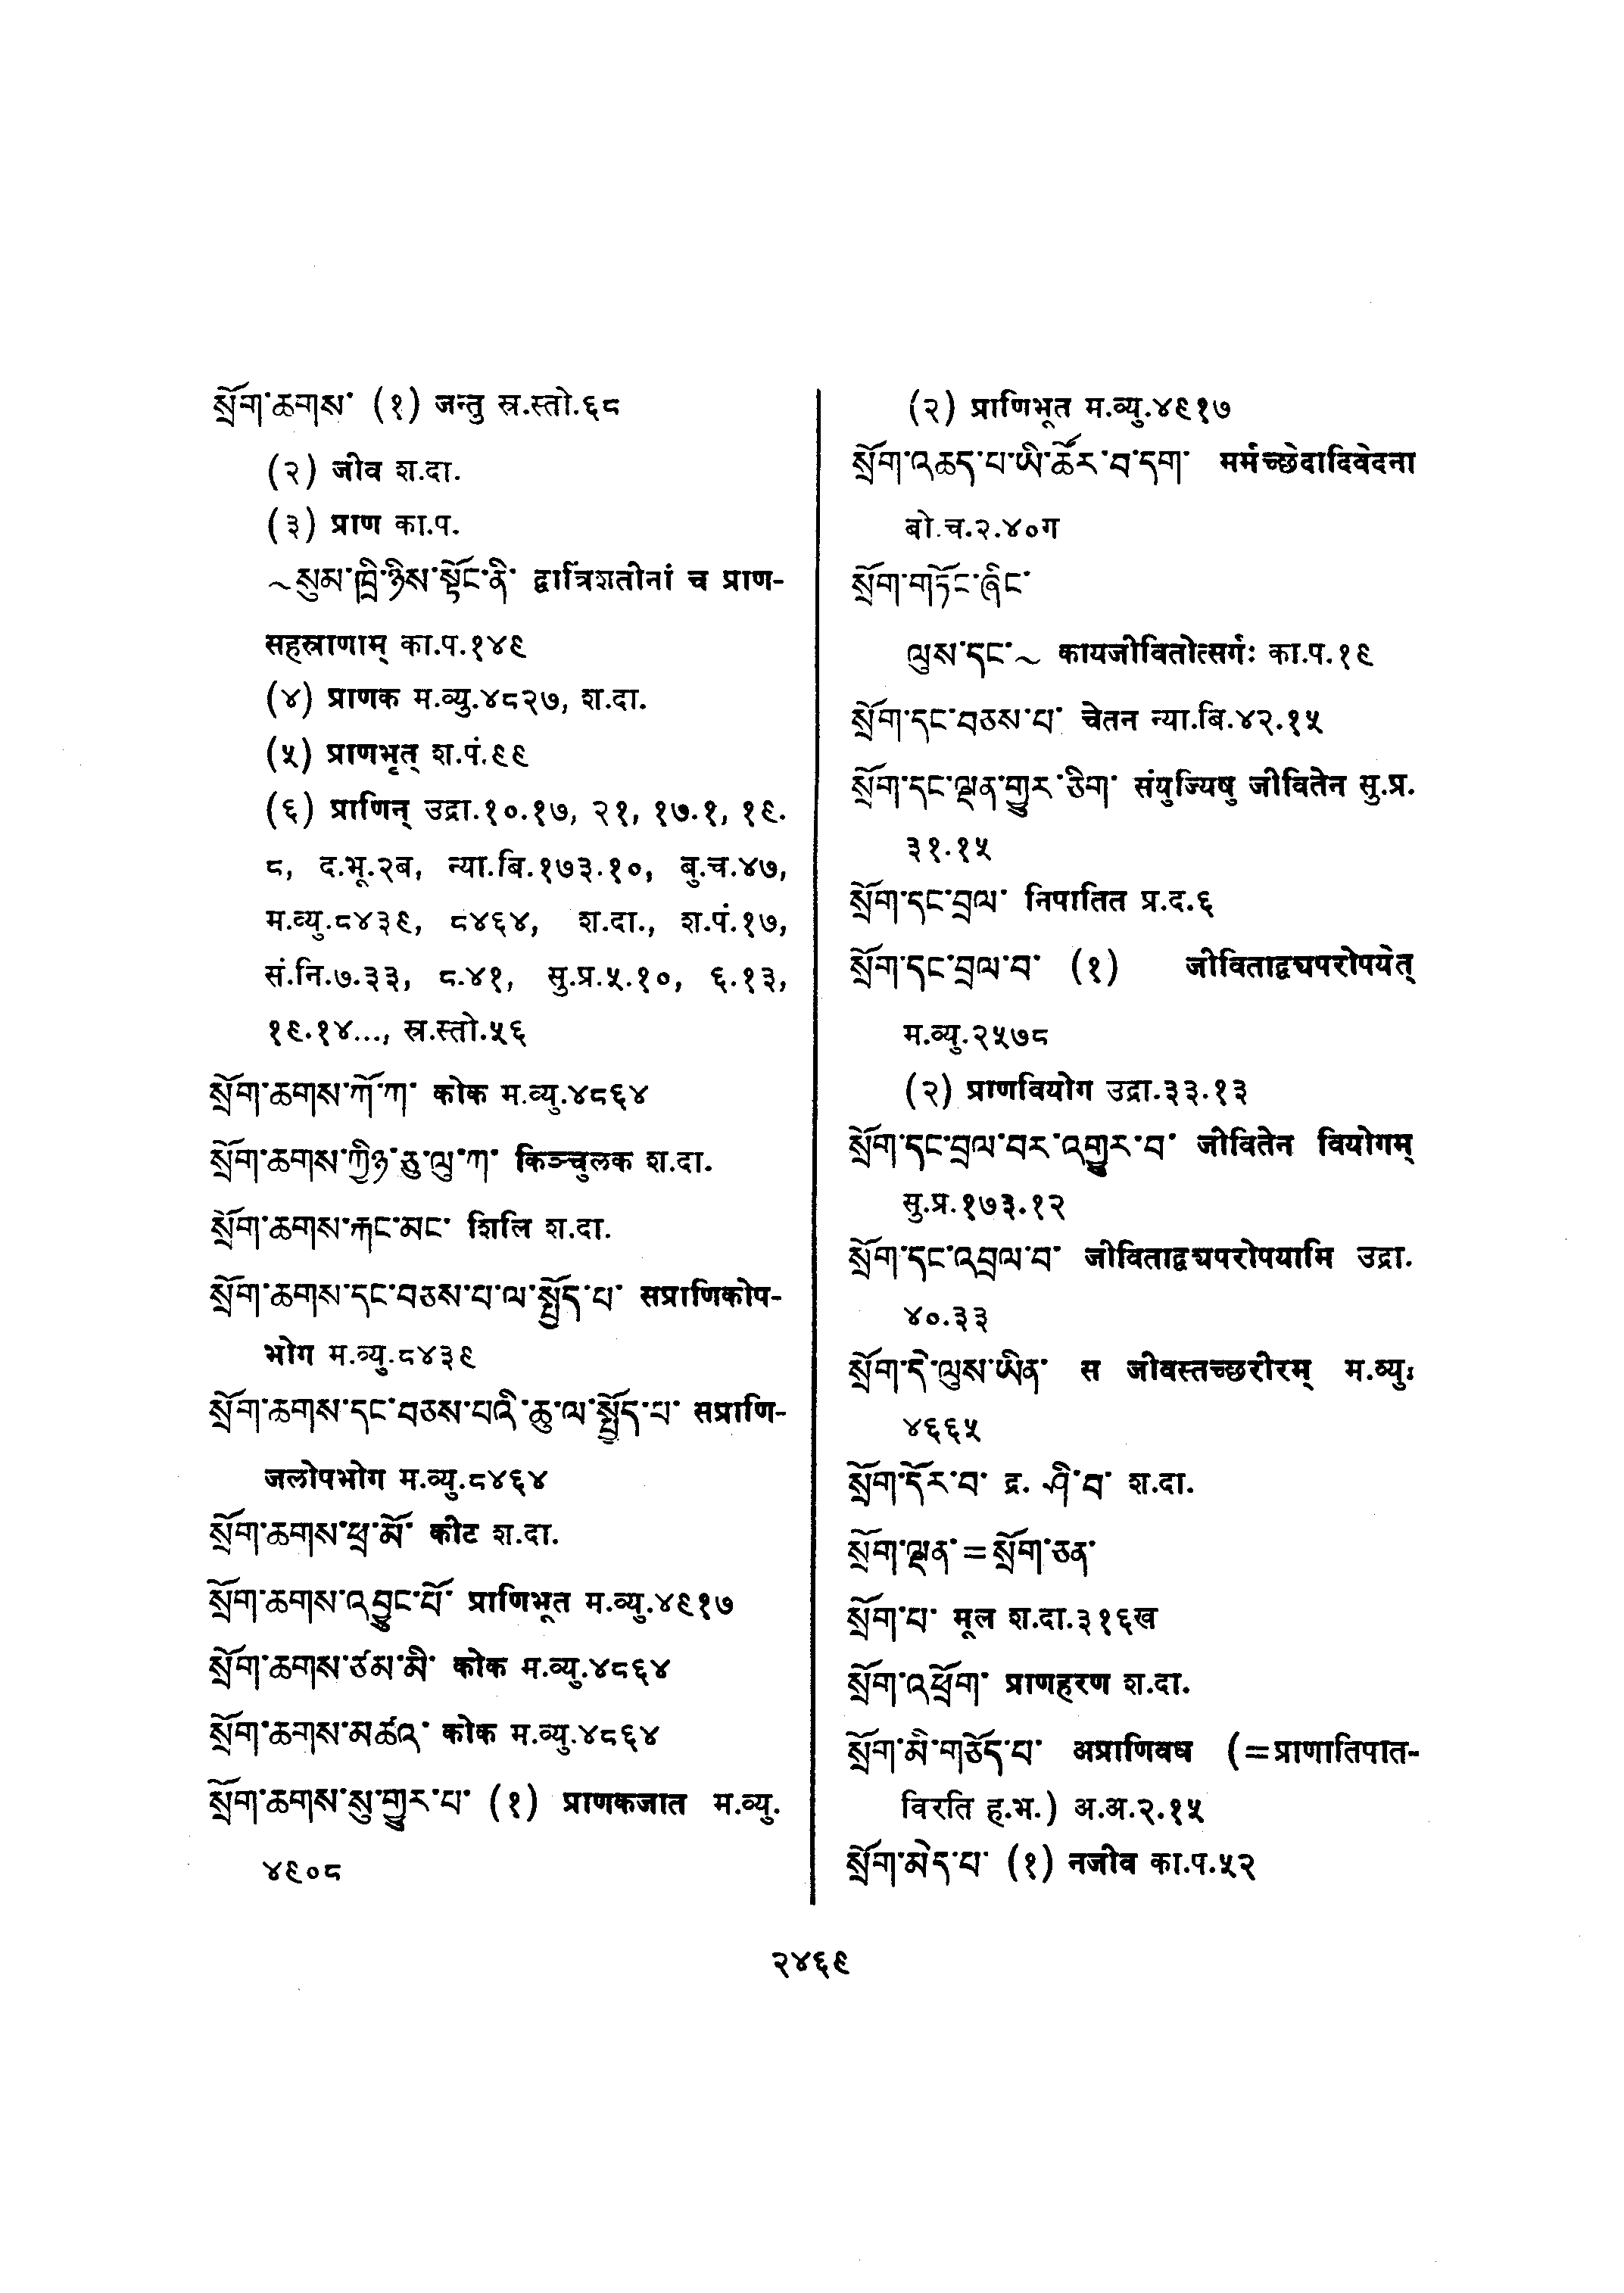 སྲོག་ཆགས་ (१) जन्तु स्र.स्तो.६८
(२) जीव श.दा.
(३) प्राण का.प.
~སུམ་ཁྲི་ཉིས་སྟོང་ནི་ द्वात्रिंशतीनां च प्राण-
सहस्राणाम् का.प.१४९
(४) प्राणक म.व्यु.४८२७, श.दा.
(५) प्राणभृत् श.पं.९९
(६) प्राणिन् उद्रा.१०.१७, २१, १७.१, १९.
८, द.भू.२ब, न्या.बि.१७३.१०, बु.च.४७,
म.व्यु.८४३९, ८४६४, श.दा., श.पं.१७,
सं.नि.७.३३, ८.४१, सु.प्र.५.१०, ६.१३,
१९.१४..., स्र.स्तो.५६
སྲོག་ཆགས་ཀོ་ཀ་ कोक म.व्यु.४८६४
སྲོག་ཆགས་ཀྱིཉ་ཅུ་ལུ་ཀ་ किञ्चुलक श.दा.
སྲོག་ཆགས་རྐང་མང་ शिलि श.दा.
སྲོག་ཆགས་དང་བཅས་པ་ལ་སྤྱོད་པ་ सप्राणिकोप-
भोग म.व्यु.८४३९
སྲོག་ཆགས་དང་བཅས་པའི་ཆུ་ལ་སྤྱོད་པ་ सप्राणि-
जलोपभोग म.व्यु.८४६४
སྲོག་ཆགས་ཕྲ་མོ་ कीट श.दा.
སྲོག་ཆགས་འབྱུང་པོ་ प्राणिभूत म.व्यु.४९१७
སྲོག་ཆགས་ཙམ་མི་ कोक म.व्यु.४८६४
སྲོག་ཆགས་མཚའ་ कोक म.व्यु.४८६४
སྲོག་ཆགས་སུ་གྱུར་པ་ (१) प्राणकजात म.व्यु.
४९०८
(२) प्राणिभूत म.व्यु.४९१७
སྲོག་འཆད་པ་ཡི་ཚོར་བ་དག་ मर्मच्छेदादिवेदना
बो.च.२.४०ग
སྲོག་གཏོང་ཞིང་
ལུས་དང་~ कायजीवितोत्सर्गः का.प.१९
སྲོག་དང་བཅས་པ་ चेतन न्या.बि.४२.१५
སྲོག་དང་ལྡན་གྱུར་ཅིག་ संयुज्यिषु जीवितेन सु.प्र.
३१.१५
སྲོག་དང་བྲལ་ निपातित प्र.द.६
སྲོག་དང་བྲལ་བ་ (१) जीविताद्व्यपरोपयेत्
म.व्यु.२५७८
(२) प्राणवियोग उद्रा.३३.१३
སྲོག་དང་བྲལ་བར་འགྱུར་བ་ जीवितेन वियोगम्
सु.प्र.१७३.१२
སྲོག་དང་འབྲལ་བ་ जीविताद्व्यपरोपयामि उद्रा.
४०.३३
སྲོག་དེ་ལུས་ཡིན་ स जीवस्तच्छरीरम् म.व्युः
४६६५
སྲོག་དོར་བ་ द्र. ཤི་བ་ श.दा.
སྲོག་ལྡན་=སྲོག་ཅན་
སྲོག་པ་ मूल श.दा.३१६ख
སྲོག་འཕྲོག་ प्राणहरण श.दा.
སྲོག་མི་གཅོད་པ་ अप्राणिवध (=प्राणातिपात-
विरति ह.भ.) अ.अ.२.१५
སྲོག་མེད་པ་ (१) नजीव का.प.५२
२४६९